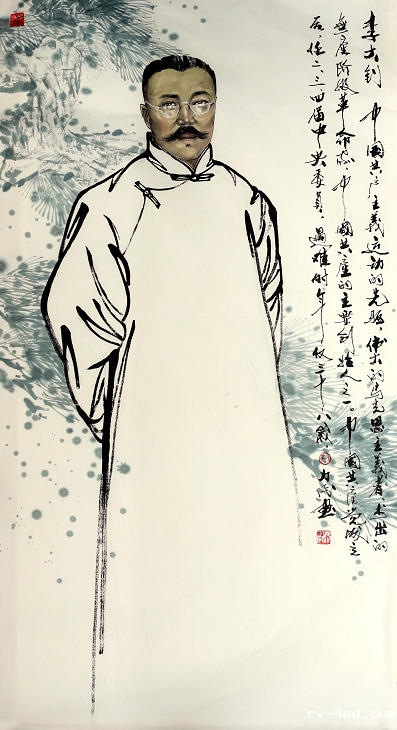 李大钊 中国共产主義运动的先驱，伟大的马克思主義者、杰出的
無産阶级革命家、中國共産的主要创始人之一。中國共産党成立
后，任二、三、四届中央委員。遇难时年仅三十八歲
rv-4wd.com